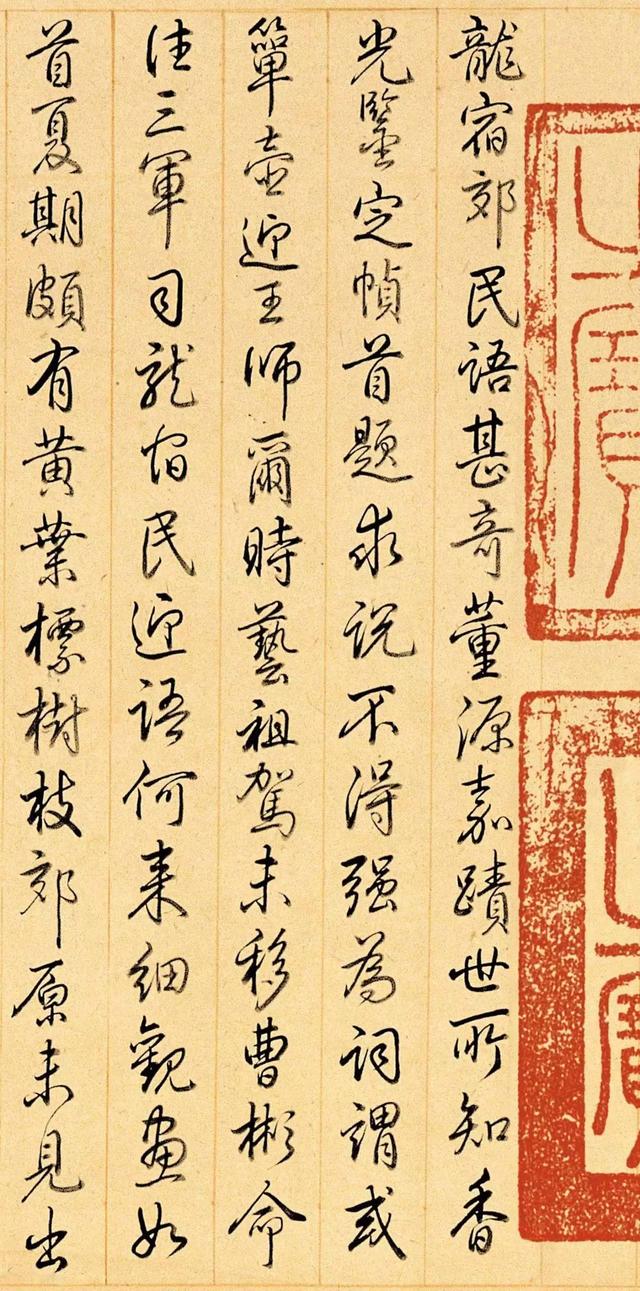 龍宿郊民語甚奇董源嘉蹟世所知香
光鑒定幀首題求説不得强為詞謂或
簞壺迎王師爾時藝祖駕未移曹彬命
往三軍司龍宿民迎語何来細觀畫如
首夏期頗有黄葉標樹枝郊原未見出